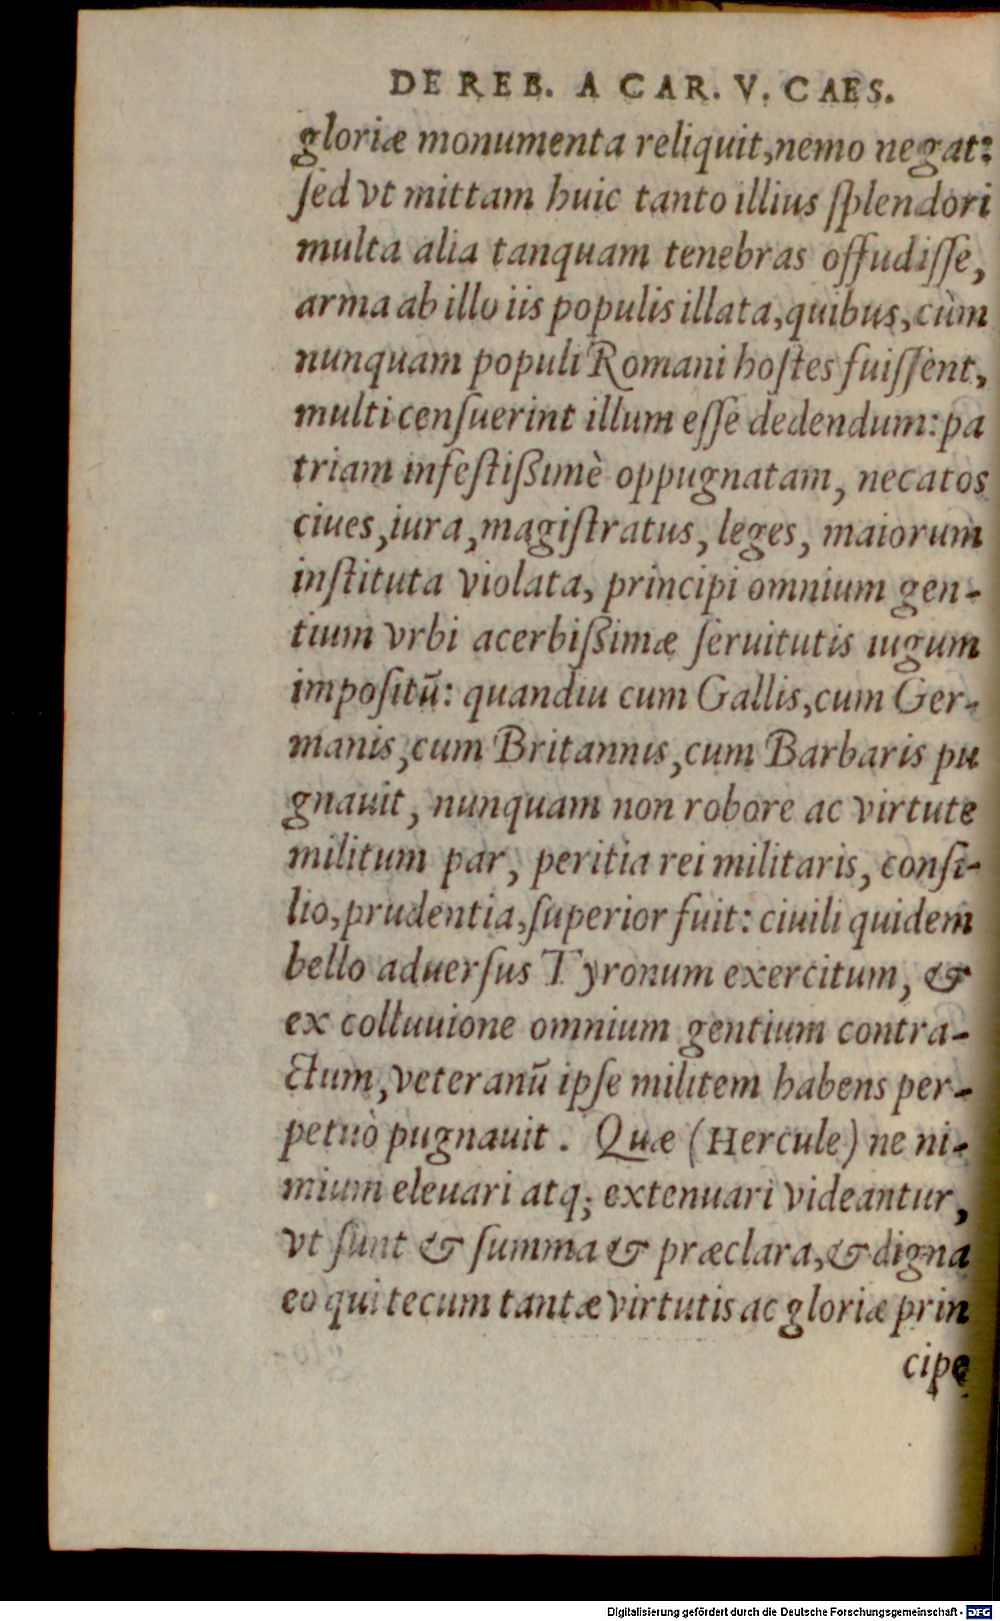 DE REB. A CAR. V. CAES.
gloriæ monumenta reliquit, nemo negat:
ſed vt mittam huic tanto illius ſplendori
multa alia tanquam tenebras offudiſſe,
arma ab illo iis populis illata, quibus, cùm
nunquam populi Romani hoſtes fuiſſent,
multi cenſuerint illum eſſe dedendum: pa
triam infeſtißimè oppugnatam, necatos
ciues, iura, magiſtratus, leges, maiorum
inſtituta violata, principi omnium gen-
tium vrbi acerbißimæ ſeruitutis iugum
impoſitū: quandiu cum Gallis, cum Ger-
manis, cum Britannis, cum Barbaris pu
gnauit, nunquam non robore ac virtute
militum par, peritia rei militaris, conſi-
lio, prudentia, ſuperior fuit: ciuili quidem
bello aduerſus Tyronum exercitum, &
ex colluuione omnium gentium contra-
ctum, veteranū ipſe militem habens per-
petuò pugnauit. Quæ (Hercule) ne ni-
mium eleuari atq; extenuari videantur,
vt ſunt & ſumma & præclara, & digna
eo qui tecum tantæ virtutis ac gloriæ prin
cipe
Digitalisierung gefördert durch die Deutsche Forschungsgemeinschaft - DFG